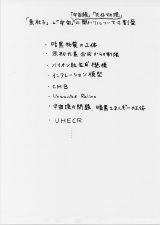 「宇宙線」「天体物理」
「素粒子」と「宇宙」の関わりについての
・暗黒物質の正体
・元素合成からの制限
・バリオン数生成機構
・インフレーション模型
・CMB
・Unwanted Relics
・宇宙項の問題, 暗黒エネルギーの正体
・UHECR